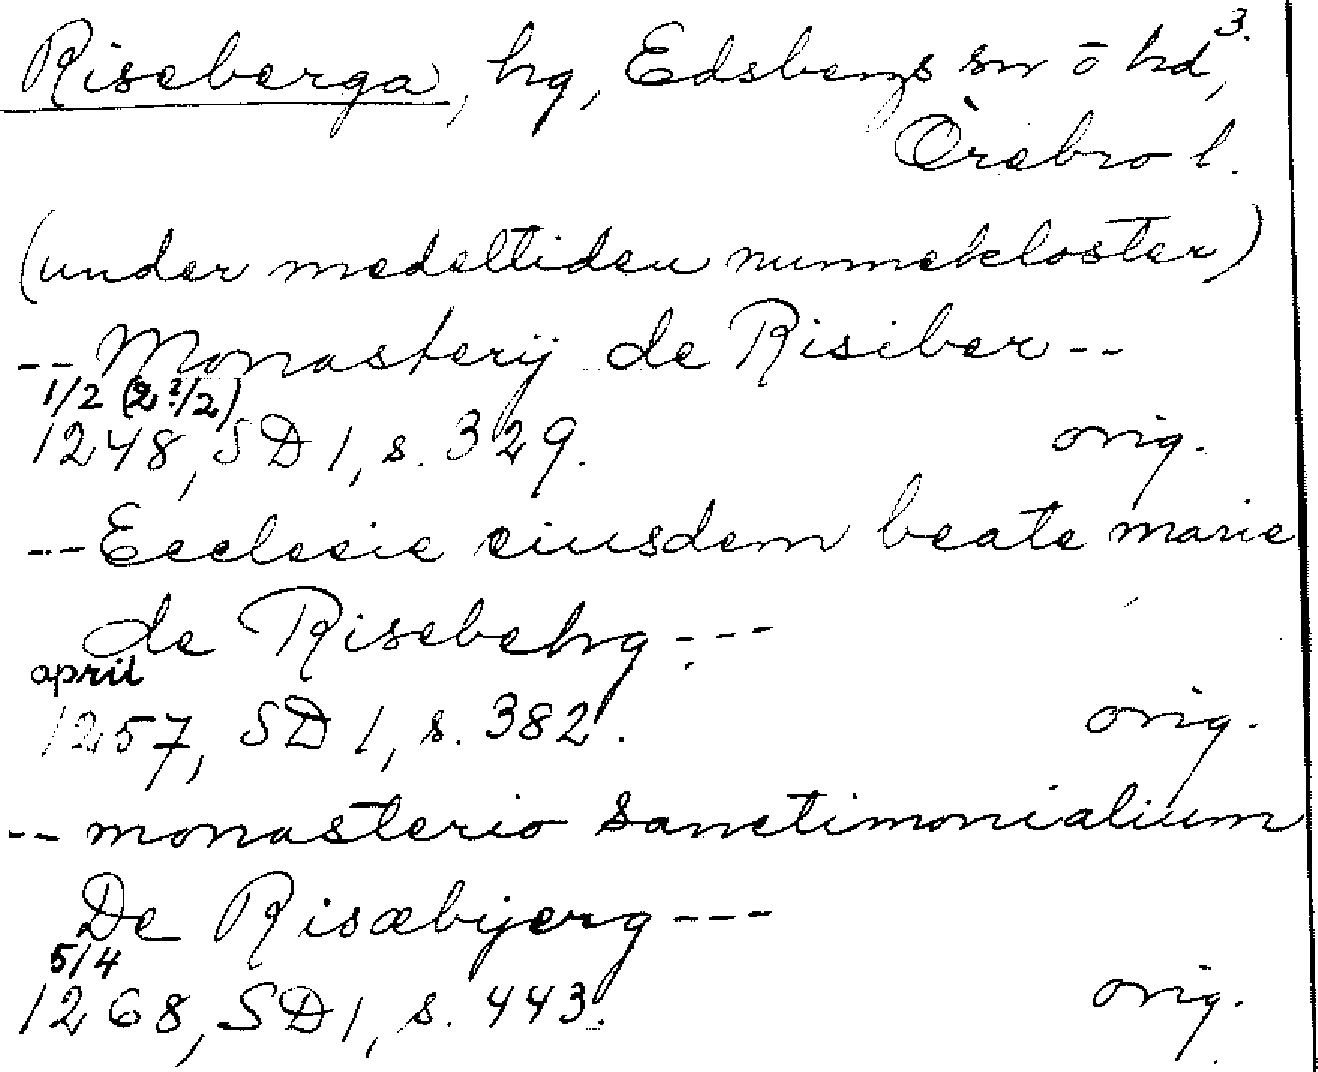 3.
Riseberga, hg, Edsbergs sn o hd,
Örebro l.
(under medeltiden nunnekloster)
-- Monasterij de Risiber --
1/2 (2?/2)
1248, SD 1, s. 329. orig.
--- Ecclesie eiusdem beate marie
de Risebehrg ---
april
1257, SD 1, s. 382. orig.
-- monasterio sanctimonialium
De Risæbijerg ---
5/4
1268, SD 1, s. 443. orig.